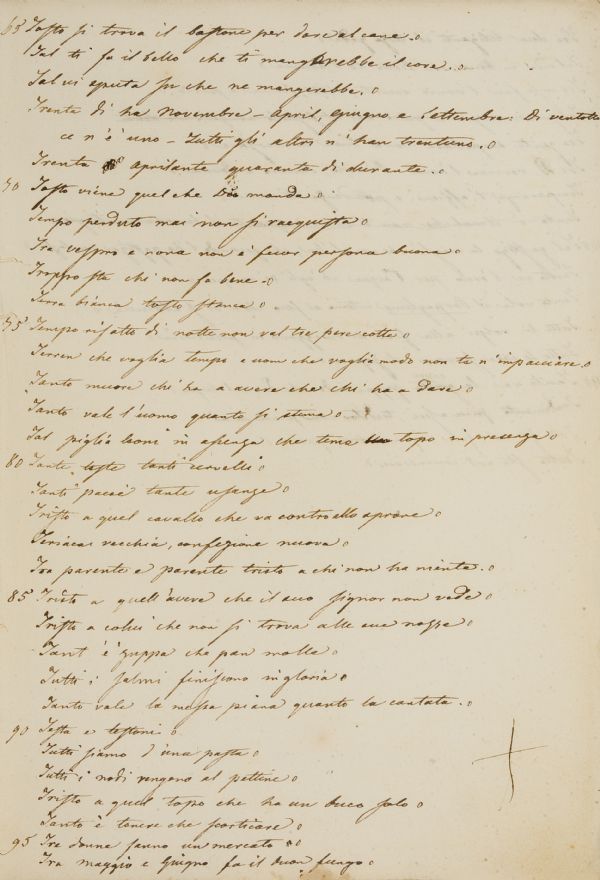 65 Tosto si trova il bastone per dare al cane.
Tal ti fa il bello che ti mangerebbe il core.
Tal vi sputa su che ne mangerebbe.
Trenta dì ha Novembre – April, Giugno e Settembre: Di ventotto
ce n'è uno – Tutti gli altri n'han trentuno.
Trenta Aprilante quaranta dì durante.
70 Tosto viene quel che Dio manda
Tempo perduto mai non si racquista
Tra vespro e nona non è fuor persona buona
Troppo sta chi non fa bene
Terra bianca tosto stanca
75 Tempo rifatto di notte non val tre pere cotte
Terren che voglia tempo e uom che voglia modo non te n'impacciare
Tanto muore chi ha a avere che chi ha a dare
Tanto vale l'uomo quanto si stima
Tal piglia leoni in assenza che teme topo in presenza
80 Tante teste tanti cervelli
Tanti paesi tante usanze
Tristo a quel cavallo che va contro allo sprone
Teriaca vecchia, confezione nuova
Tra parente e parente tristo a chi non ha niente.
85 Tristo a quell'avere che il suo signor non vede
Tristo a colui che non si trova alle sue nozze
Tant'è zuppa che pan molle
Tutti i salmi finiscono in gloria
Tanto vale la messa piana quanto la cantata.
90 Testa e testoni
Tutti siamo d'una pasta
Tutti i nodi vengono al pettine
Tristo a quel topo che ha un buco solo
Tanto è tenere che scorticare
95 Tre donne fanno un mercato
Tra maggio e Giugno fa il buon fungo